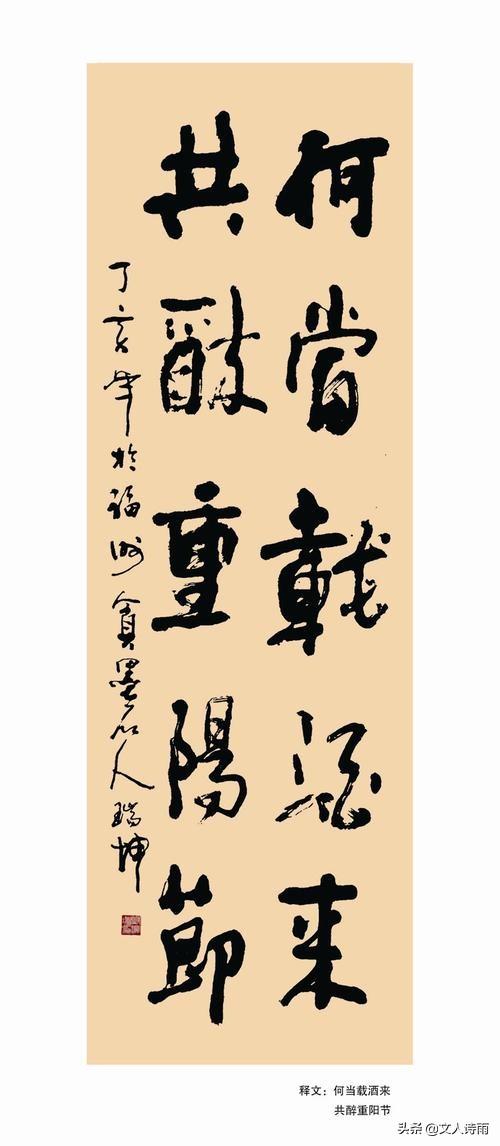 何當載酒来
共醉重陽節
丁亥年於福州貪墨人瑞坤
释文：何当载酒来
共醉重阳节
头条 @文人诗雨